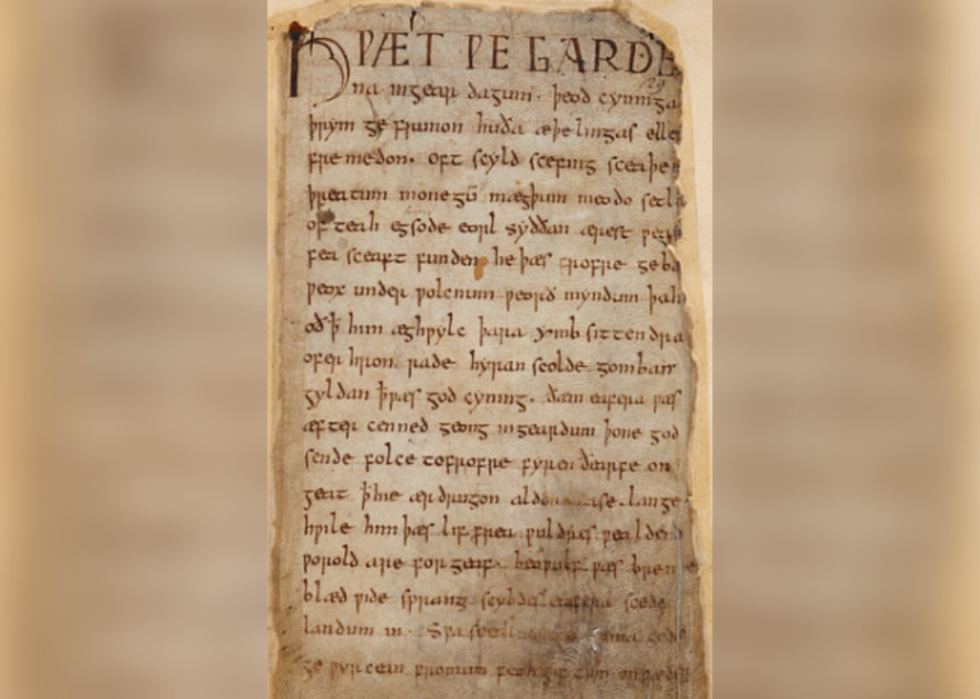 HǷÆT ǷE GARDE
na ingear dagum. þeod cyninga
þrym ge frunon huða æþelingas elle
fre medon. oft scyld scefing sceaþe
þreatum monegū mægþum meodo setla
of teah egsode eorl syððan ærest ƿearð
fea sceaft funden he þæs frofre geba
ƿeox under ƿolcnum ƿeorð myndum þah
oð ꝥ him æghƿylc þara ymb sittendra
ofer hron rade hyran scolde gomban
gyldan ꝥ ƿæs god cyning. ðæm eafera ƿæs
æfter cenned geong ingeardum þone god
sende folce tofrofre fyren ðearfe on
geat ꝥ hie ær drugon aldor ase. lange
hƿile him þæs lif frea ƿuldres ƿealdend
ƿorold are for geaf. beoƿulf ƿæs breme
blæd ƿide sprang scyldes eafera scede
landum in. Sƿa
ge ƿyrcean fromum feoh giftum